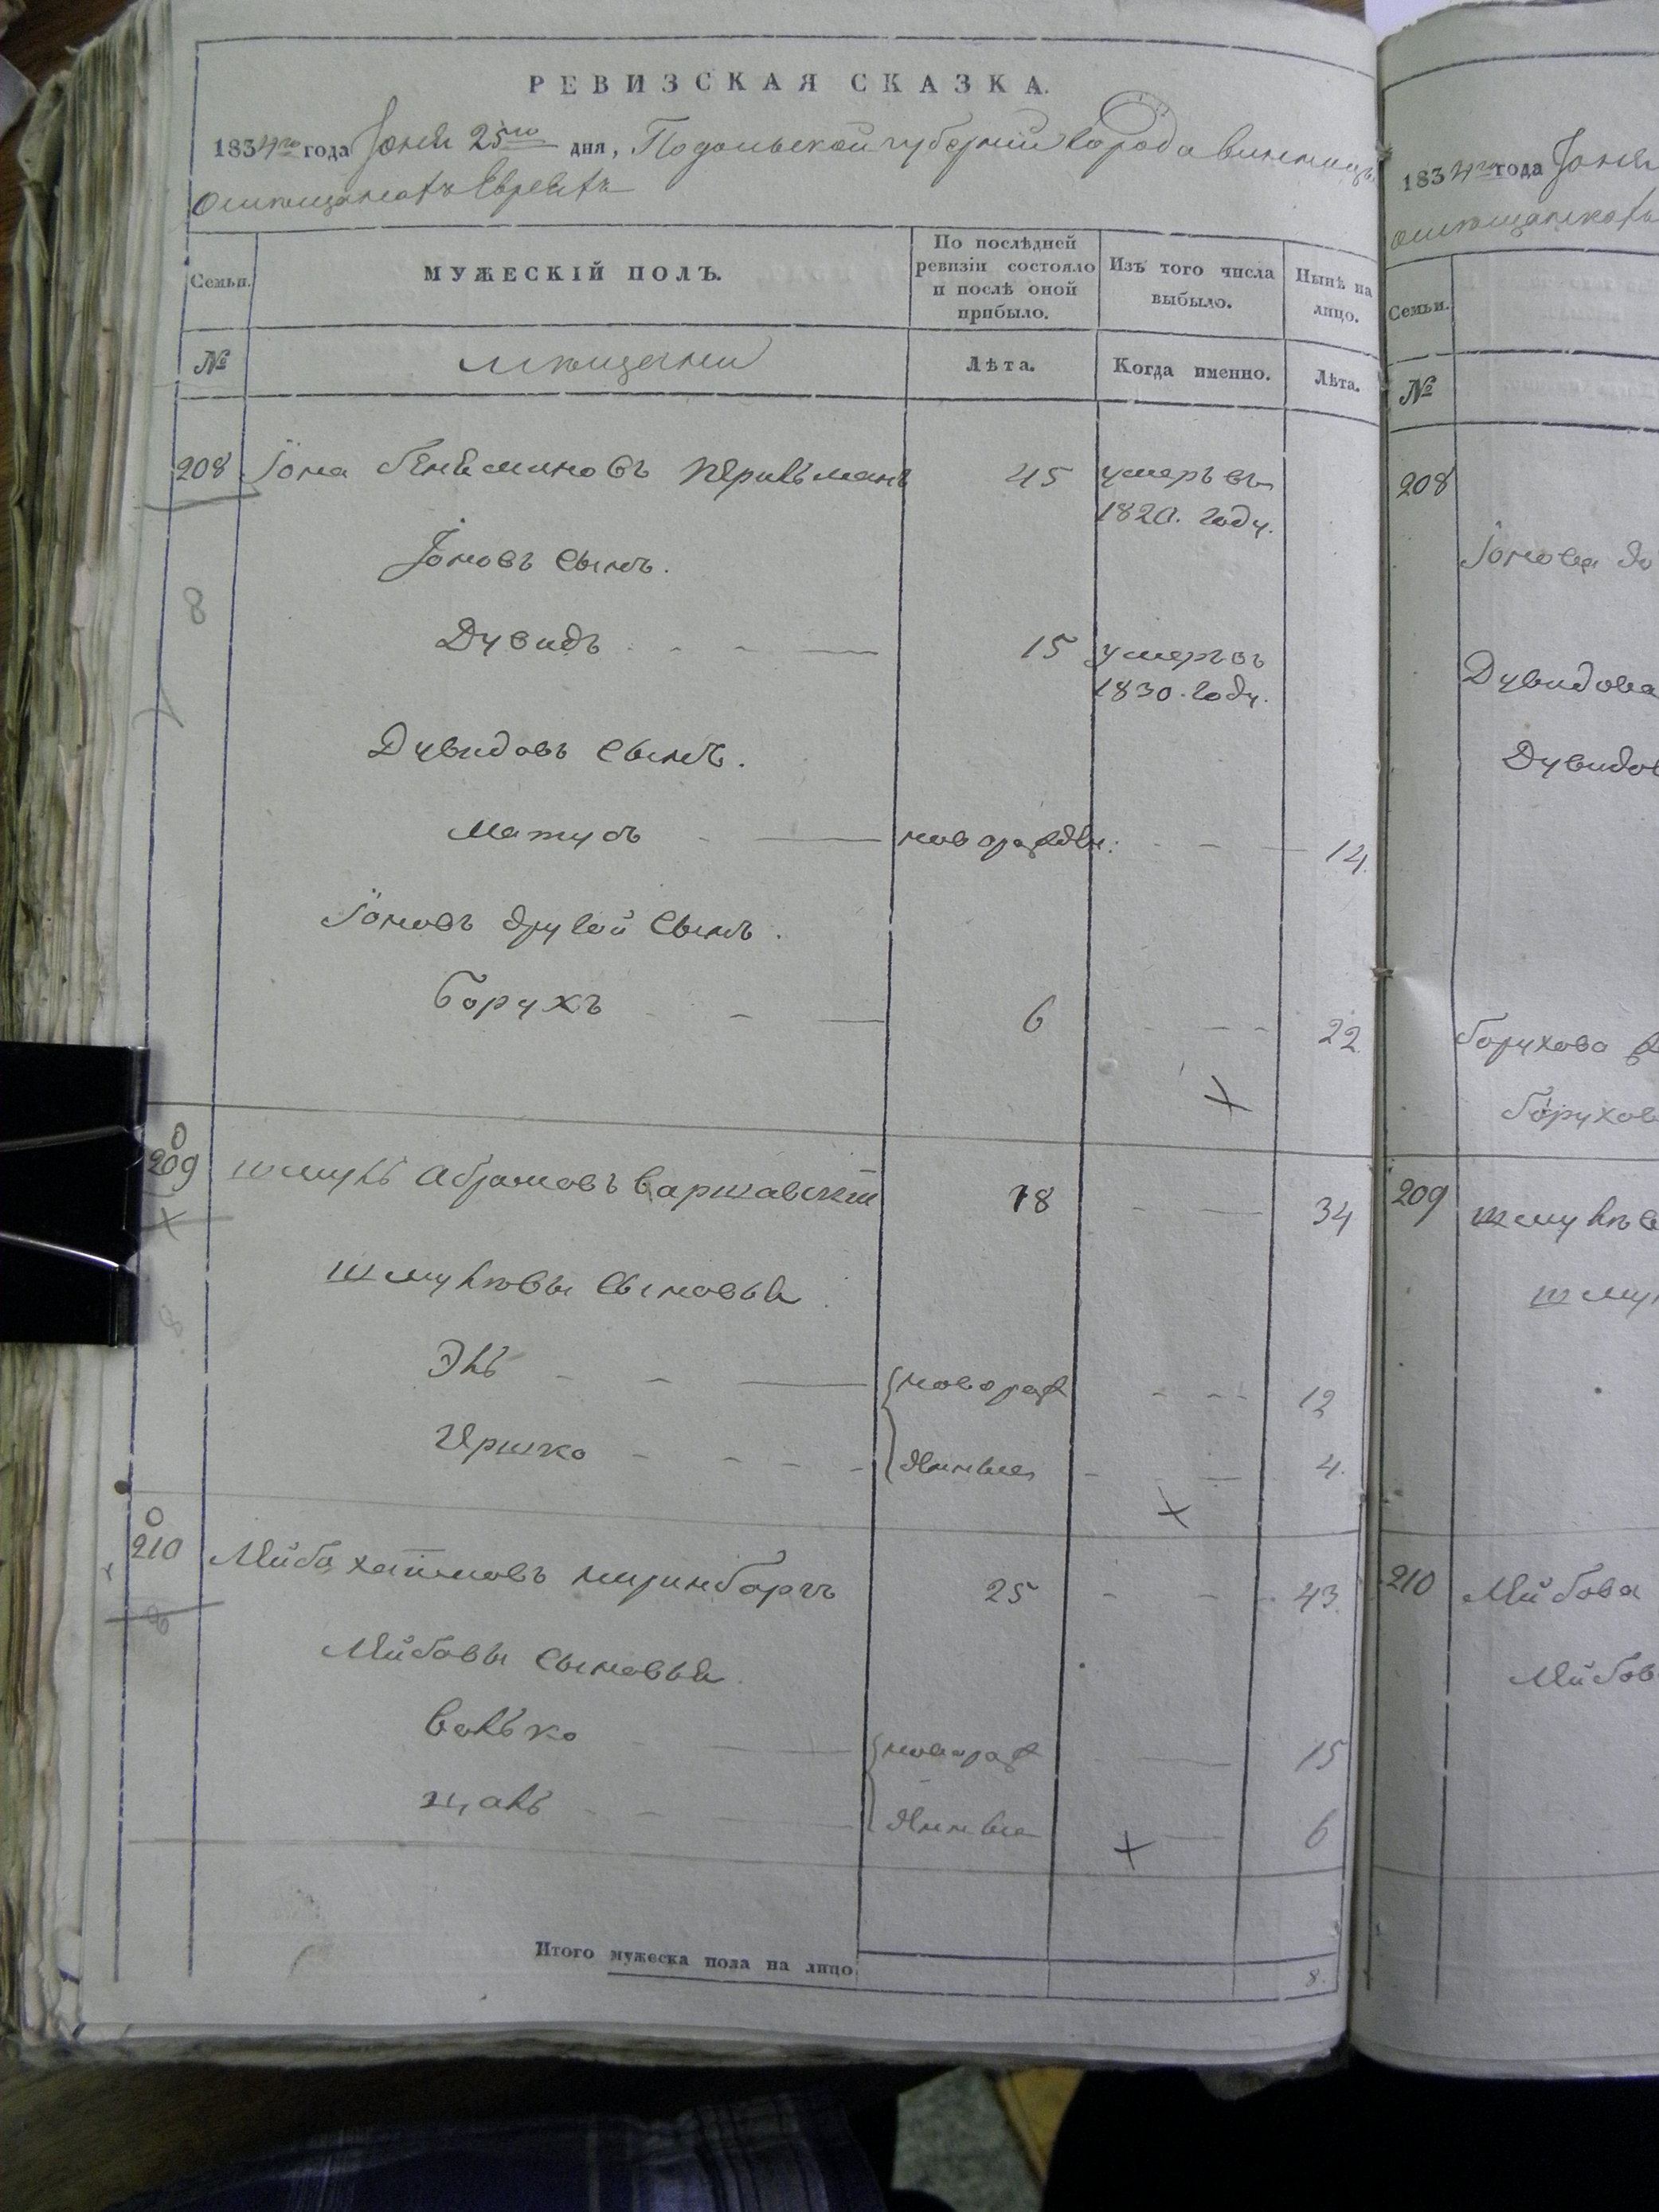 РЕВИЗСКАЯ СКАЗКА.
1834го года Іюня 25го дня, Подольской губерніи города Винницы
о мѣщанахъ Евреяхъ
Семьи.
МУЖЕСКІЙ ПОЛЪ.
По послѣдней ревизіи состояло и послѣ оной прибыло.
Изъ того числа выбыло.
Нынѣ на лицо.
№
мѣщани
Лѣта.
Когда именно.
Лѣта.
208 Іона Беняминовъ 45 умеръ въ
1820. году.
Іоновъ сынъ.
8
Дувидъ 15 умеръ въ
1830. году.
Дувидовъ сынъ.
Матусъ новорожден: 14.
Іоновъ другой сынъ.
Борухъ 6 22
209 Шмуль Абрамовъ Варшавскій 18 34
Шмулевы сыновья
Эль новорож 12
Иршко денные 4.
210 Лейба Хаимовъ 25 43.
Лейбовы сыновья
Велько новорож 15
денные 6
Итого мужеска пола на лицо 8.
1834го года Іюня
о мѣщанахъ
Семьи.
№
208
Іонова
Дувидова
Борухова
209
210 Лейбова